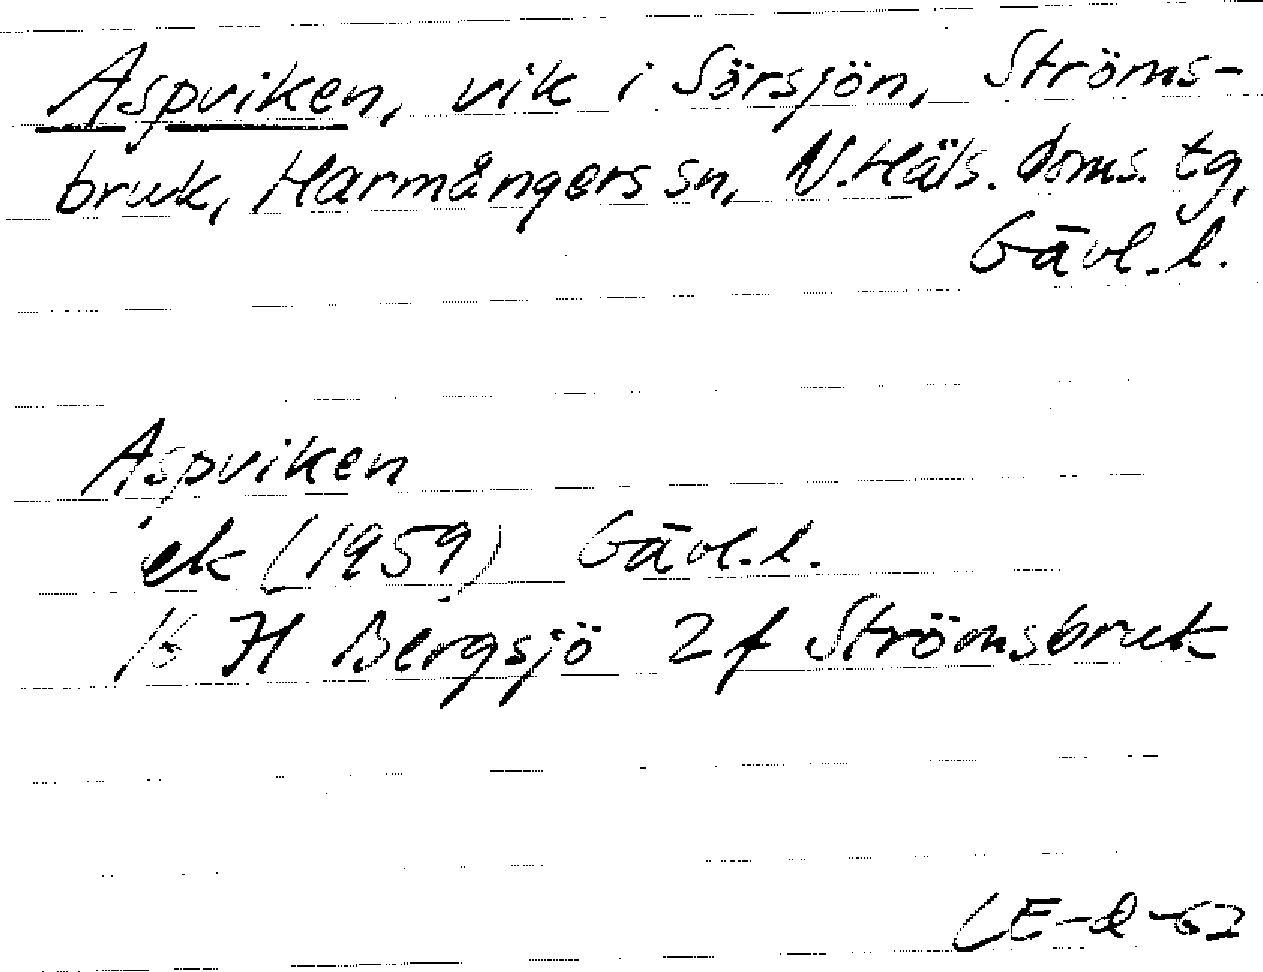 Aspviken, vik i Sörsjön, Ströms-
bruk, Harmångers sn, N. Häls. doms. tg,
Gävl. l.
Aspviken
ek (1959) Gävl. l.
16 H Bergsjö 2 f Strömsbruk